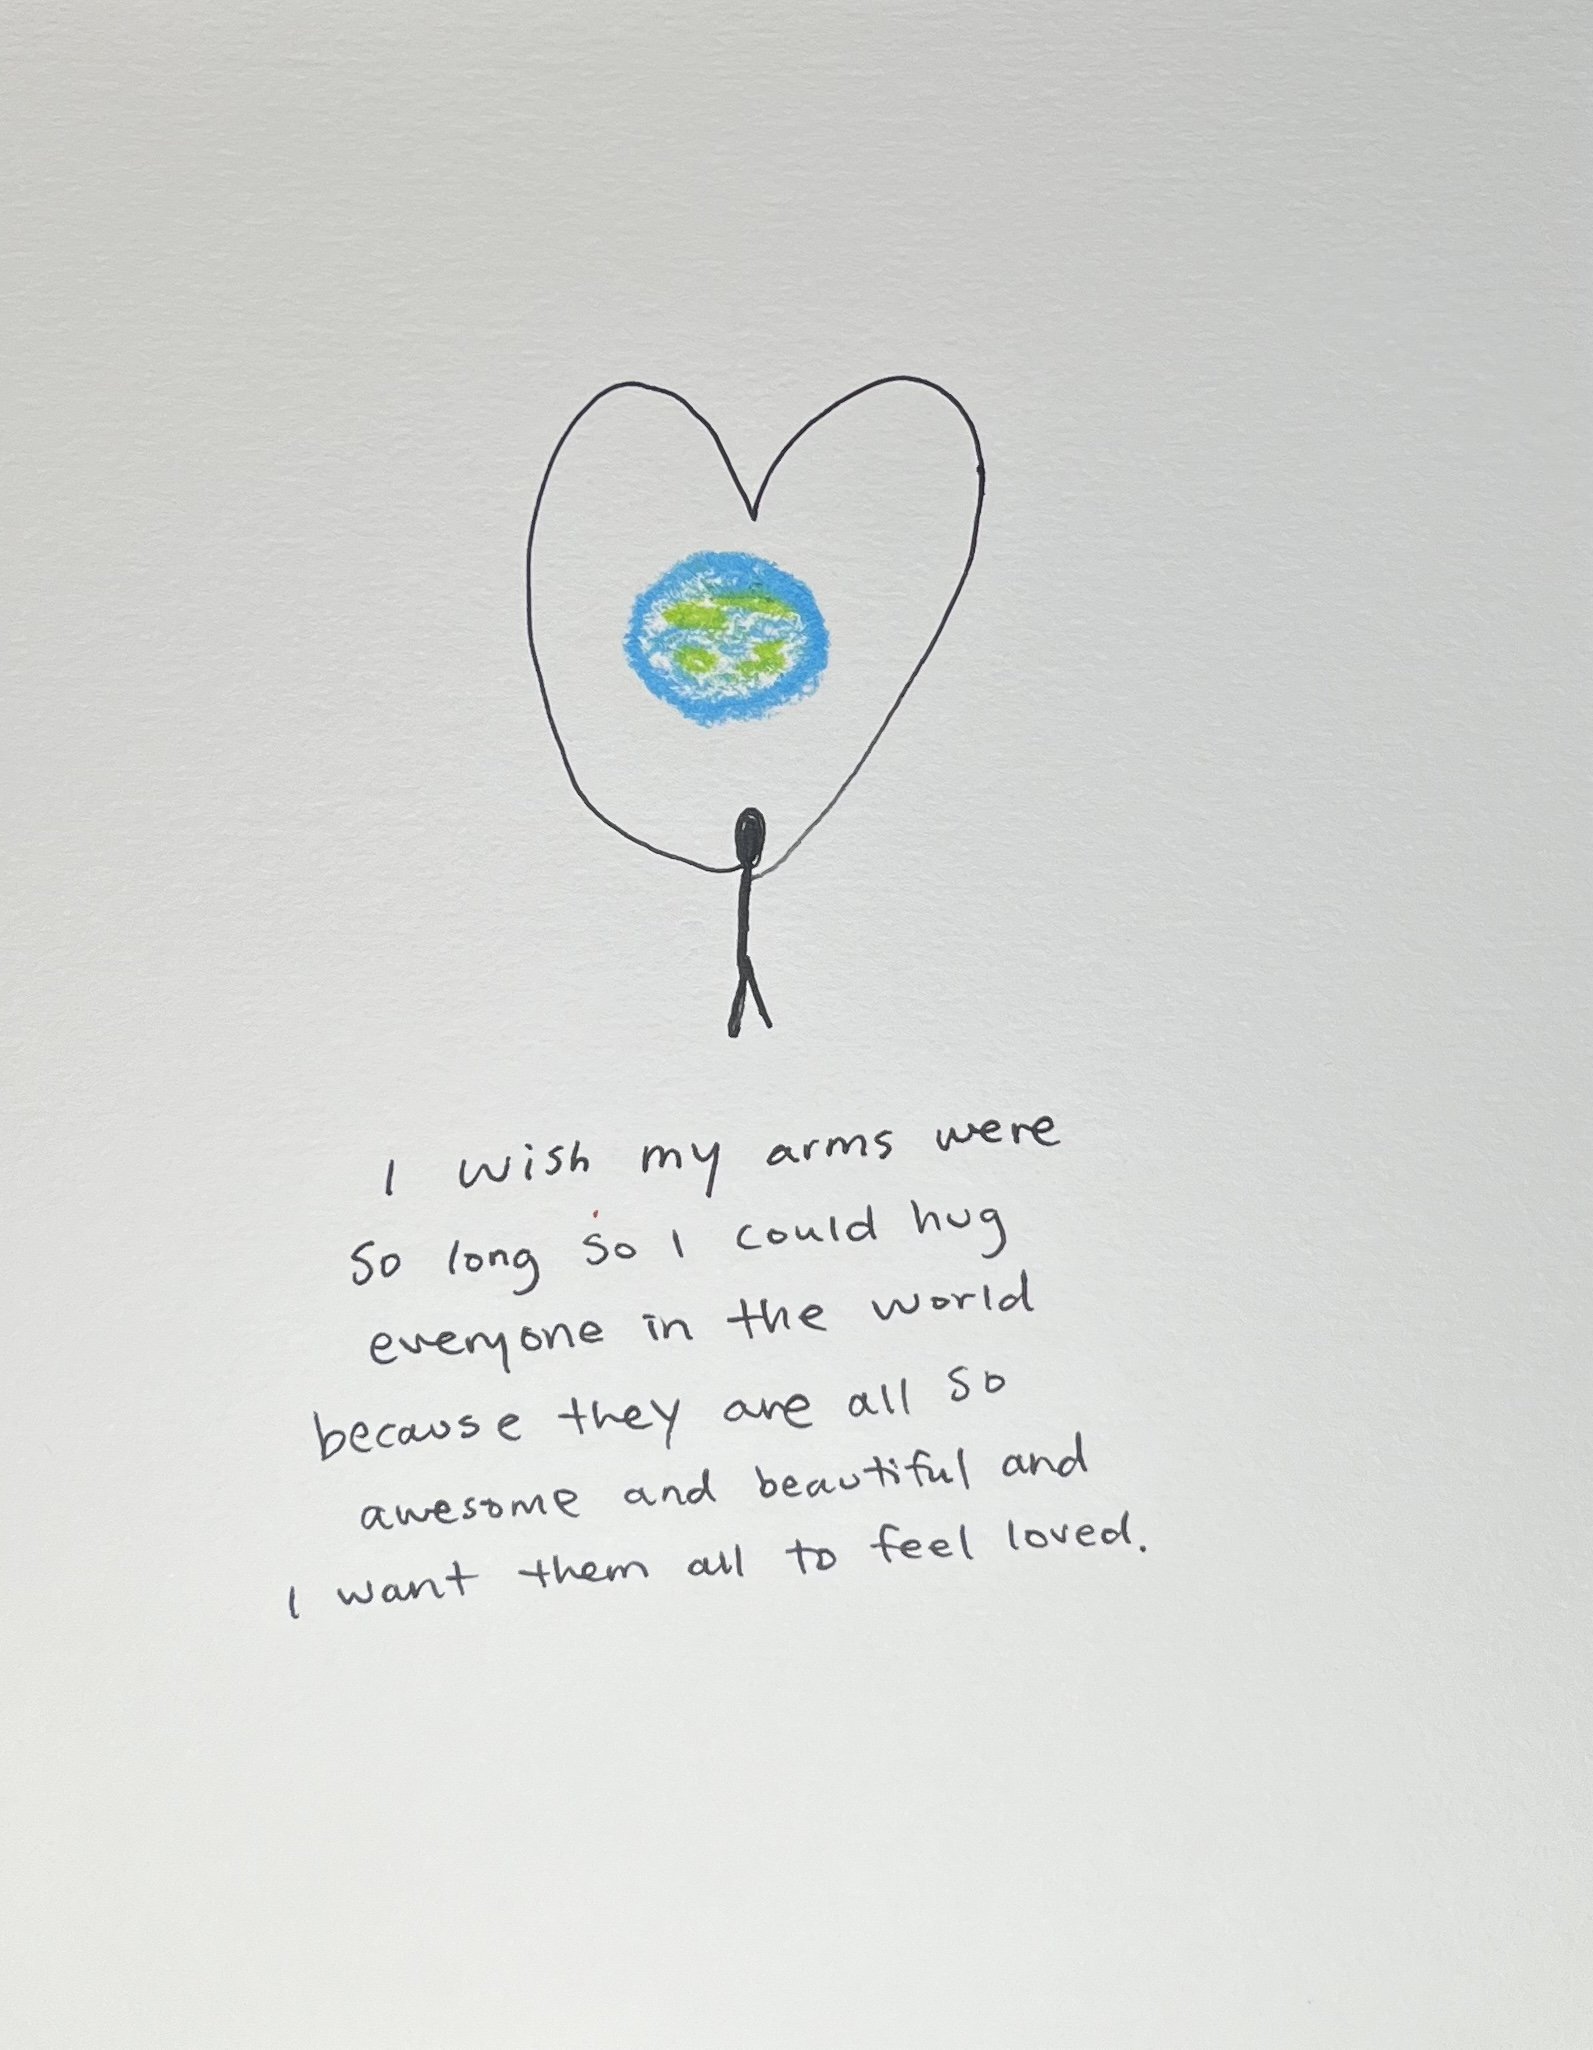 I wish my arms were
so long so I could hug
everyone in the world
because they are all so
awesome and beautiful and
I want them all to feel loved.